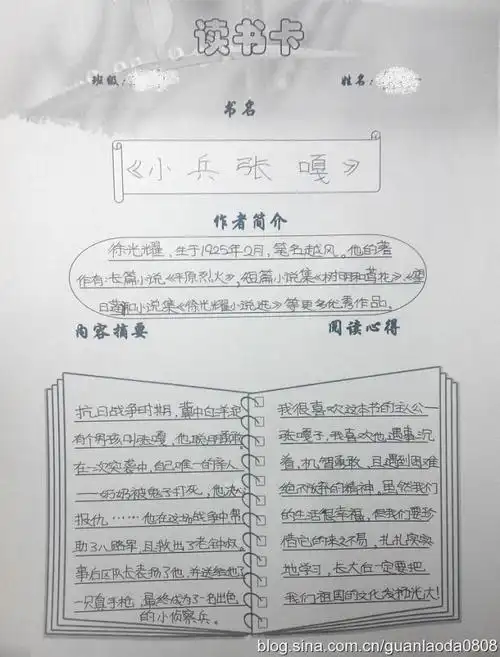 读书卡
班级： 姓名：
书名
《小兵张嘎》
作者简介
徐光耀，生于1925年，笔名越风。他的著
作有：长篇小说《平原烈火》，短篇小说集《树明和莺花》、《望
日莲》和小说集《徐光耀小说选》等更多优秀作品。
内容摘要 阅读心得
抗日战争时期，冀中白洋淀
有个男孩叫张嘎，他机智勇敢
在一次突袭中，自己唯一的亲人
——奶奶被鬼子打死，他决心
报仇……他在这场战争中帮
助了八路军，且救出了老钟叔。
事后区队长表扬了他，并送给他了
一只真手枪，最终成为了一名出色
的小侦察兵。
我很喜欢这本书的主人公—
张嘎子，我喜欢他，遇事沉
着，机智勇敢，且遇到困难
绝不放弃的精神。虽然我们
的生活很幸福，但我们要珍
惜它的来之不易，扎扎实实
地学习，长大后一定要把
我们祖国的文化发扬光大！
blog.sina.com.cn/guanlaoda0808